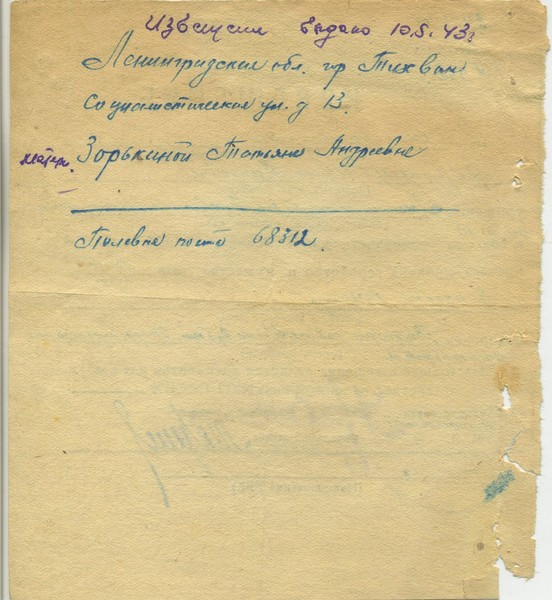 Извещения выдано 10.5.43г
Ленинградская обл. гр Тихвин
Социалистическая ул. д 13.
матери.
Зорькиной Татьяне Андреевне
Полевая почта 68312